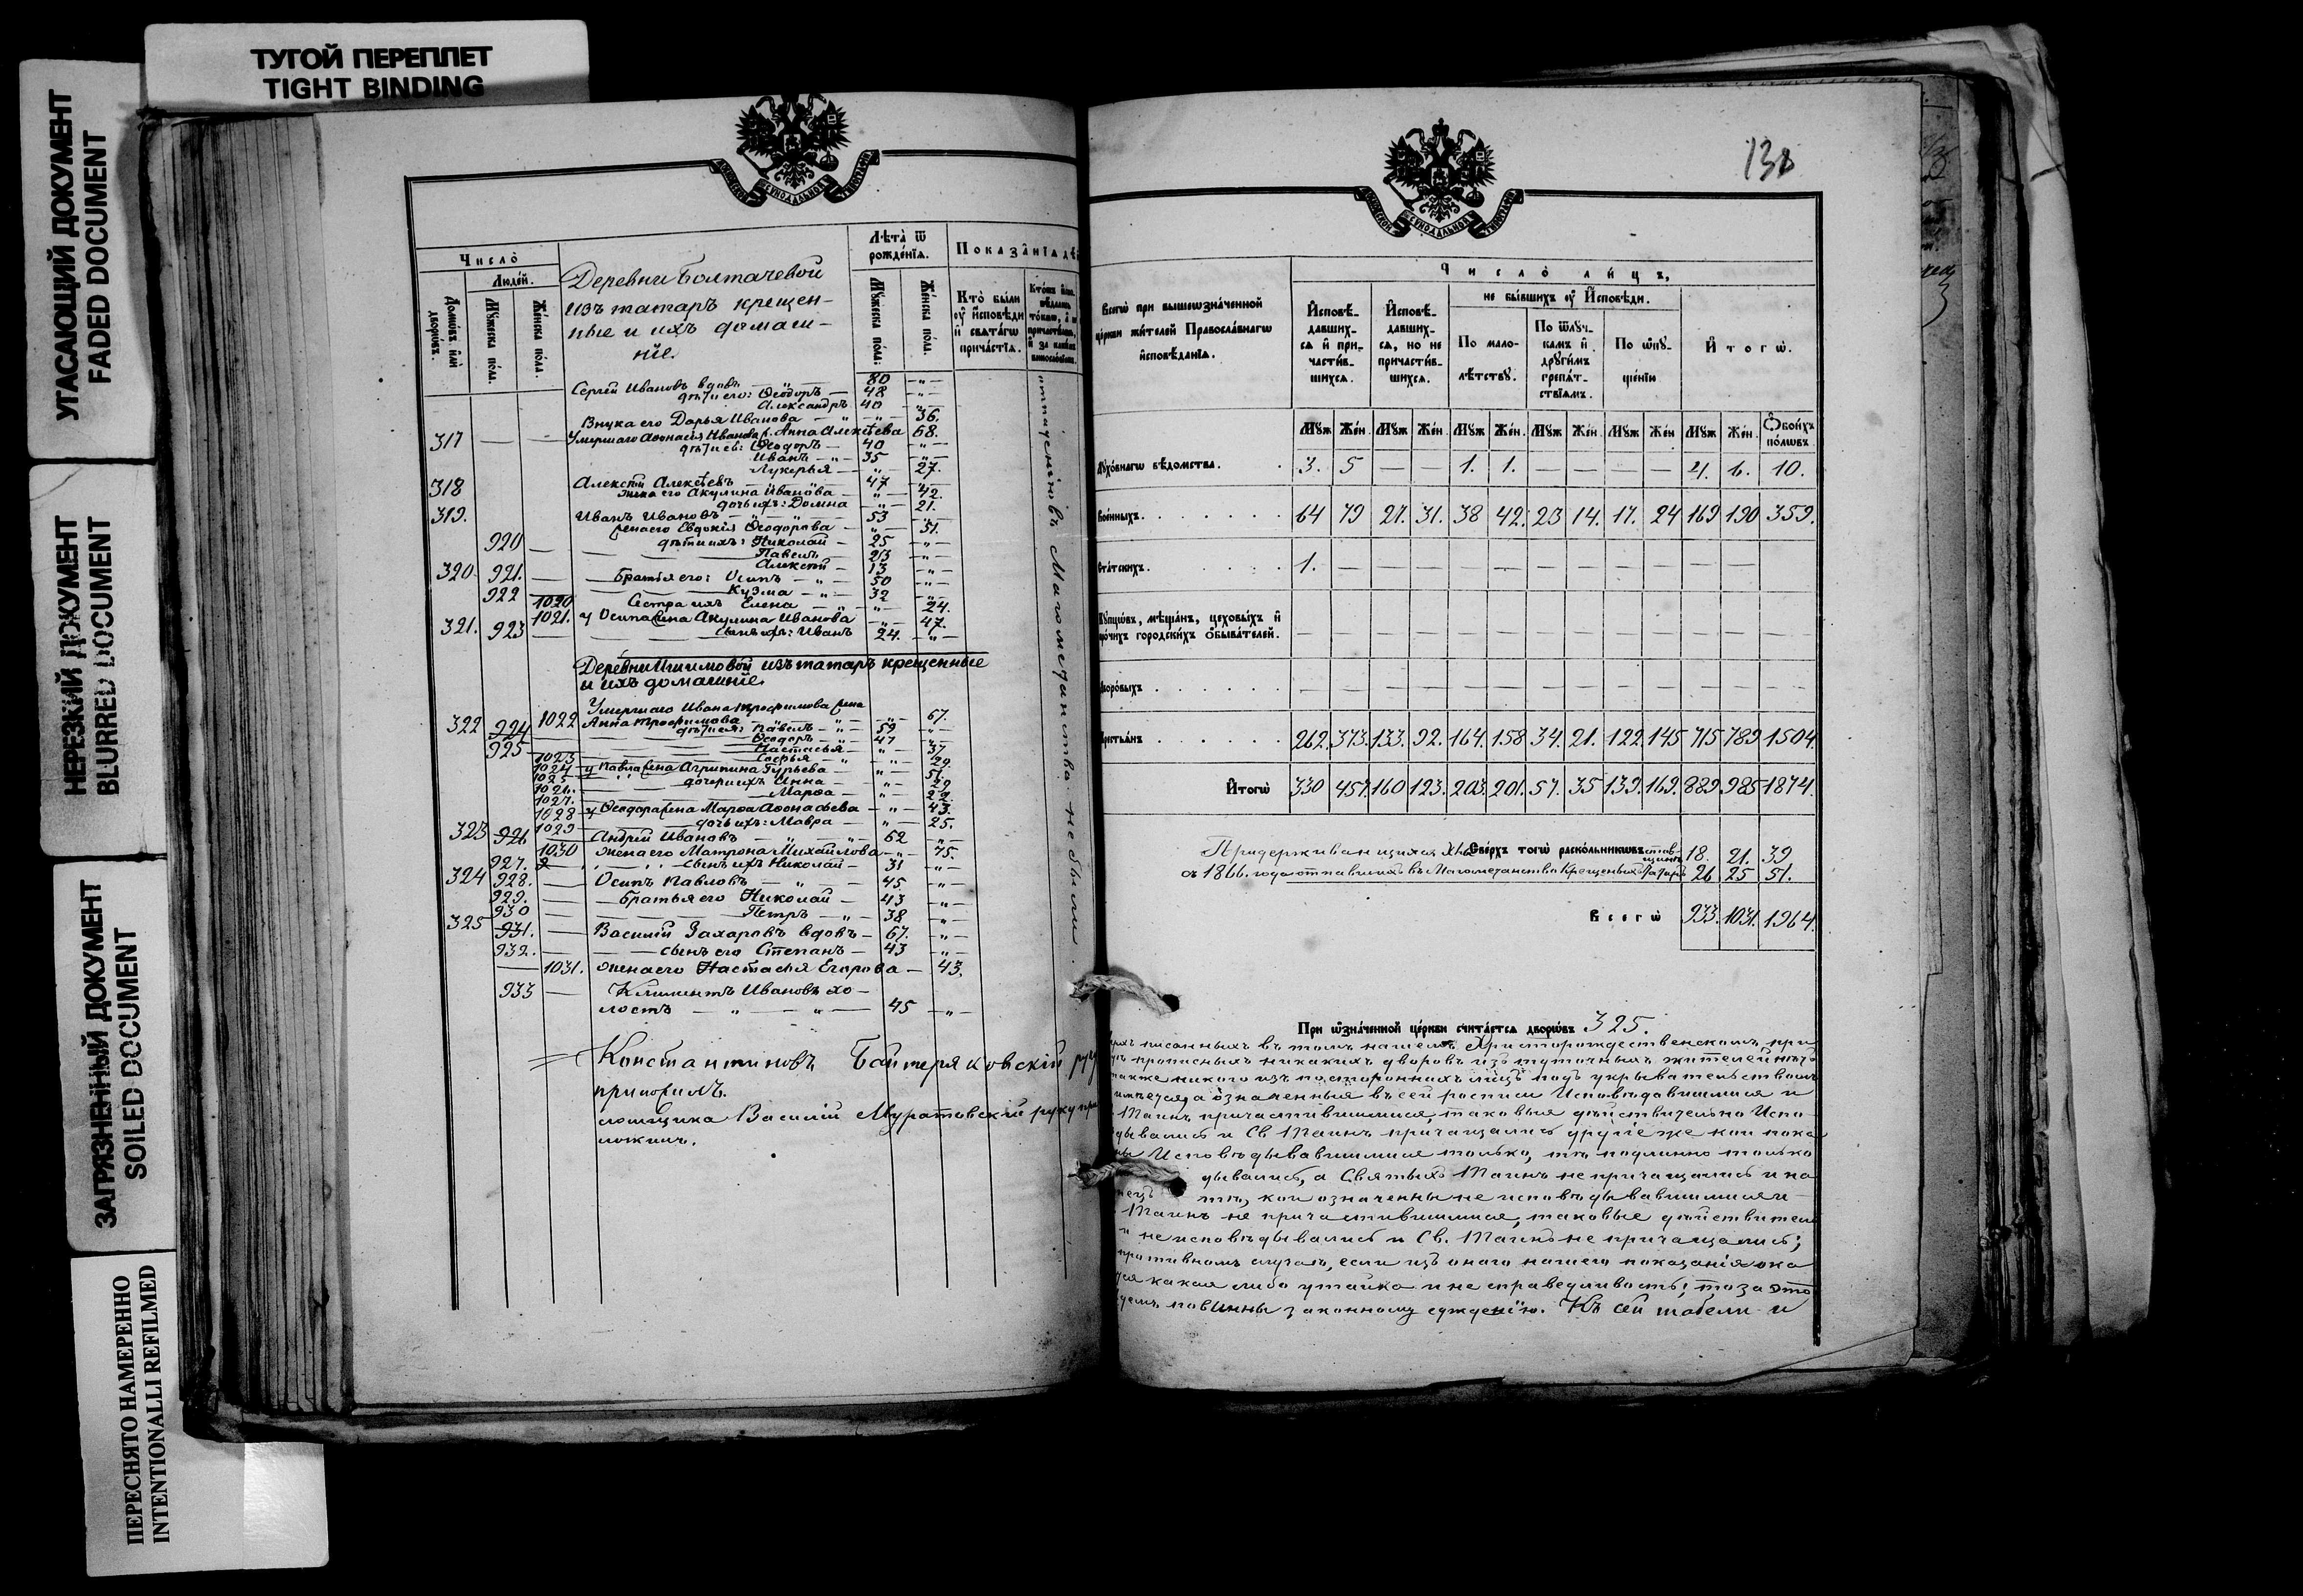 ТУГОЙ ПЕРЕПЛЕТ
TIGHT BINDING
УГАСАЮЩИЙ ДОКУМЕНТ
FADED DOCUMENT
НЕРЕЗКИЙ ДОКУМЕНТ
BLURRED DOCUMENT
ЗАГРЯЗНЕННЫЙ ДОКУМЕНТ
SOILED DOCUMENT
ПЕРЕСНЯТО НАМЕРЕННО
INTENTIONALLI REFILMED
Число̀
Людéй.
Домѡ́въ или̑ дворѡ́въ.
Мꙋ́жеска по́ла.
Же́нска по́ла.
Деревни Болтачевой
изъ татаръ крещен-
ные и ихъ домаш-
ніе.
Лѣта̀ ѿ рожде́нїѧ.
Мꙋ́жеска по́ла.
Же́нска по́ла.
Показа́нїѧ дѣ
Кто̀ бы́ли оу҆ и҆сповѣди и҆ свѧта́гѡ прича́стїѧ.
Сергѣй Ивановъ вдовъ — 80 —
дѣти его: Ѳеодоръ — 48 —
Александръ 40 —
Внука его Дарья Иванова — 36.
317 — — Умершаго Аѳонасія Иванова ж. Анна Алексѣева 68.
дѣти ев: Ѳеодоръ — 40 —
Иванъ — 35 —
Лукерья — 27.
318 Алексѣй Алексѣевъ — 47 —
жена его Акулина Иванова — 42.
дочь ихъ: Домна — 21.
319. Иванъ Ивановъ — 53 —
жена его Евдокія Ѳеодорова — 51.
920 — дѣти ихъ: Николай — 25 —
Павелъ — 23 —
Алексѣй — 13 —
320 921. — Братья его: Осипъ — 50 —
922 — Кузма — 32 —
1020 Сестра ихъ Елена — 24.
1021. у Осипа жена Акулина Иванова — 47.
321. 923 — сынъ ихъ: Иванъ 24. —
Деревни Ишимовой изъ татаръ крещенные
и ихъ домашніе.
Умершаго Ивана Трофимова жена
322 924 1022 Анна Трофимова — 67.
дѣти ея: Павелъ — 59 —
925 — Ѳеодоръ — 47 —
Настасья — 37
1023 Софья — 29.
1024 у Павла жена Агрипина Гурьева — 51.
1025 дочери ихъ Анна — 29
1026. Марѳа — 22.
1027.
1028 у Ѳеодора жена Марѳа Аѳонасьева — 43.
1029 дочь ихъ: Мавра — 25.
323 926 — Андрей Ивановъ — 62 —
1030 жена его Матрона Михайлова — 75.
927. сынъ ихъ Николай — 31 —
324 928. — Осипъ Павловъ — 45. —
929. — Братья его Николай — 43 —
930 — Петръ — 38 —
325 931. — Василій Захаровъ вдовъ — 67. —
932. — сынъ его Степанъ — 43 —
— 1031. жена его Настасья Егорова — 43.
933 — Климентъ Ивановъ хо-
лостъ — 45 —
Константиновъ Байтеряковскій
приложилъ.
Василій Муратовскій руку при
ложилъ.
въ Магометанство не были
130
Всегѡ̀ при вышеѡзна́ченной
це́ркви жи́телей Правосла́внагѡ
и҆сповѣ́данїѧ.
Число̀ ли́цъ,
И҆сповѣ́-давших-сѧ и҆ при-части́в-шихсѧ.
И҆сповѣ́-давших-сѧ, но не причасти́в-шихсѧ.
не бы́вшихъ оу҆ И҆сповѣди.
По мало-лѣ́тствꙋ.
По ѿлꙋ́ч-камъ и҆ дрꙋги́мъ препѧ́т-ствїѧмъ.
По ѡ҆пꙋ-ще́нїю
И҆тогѡ̀.
Мꙋж Же́н. Мꙋж Же́н. Мꙋж Же́н. Мꙋж Же́н. Мꙋж Же́н Мꙋж Же́н. Ѻ҆бои́хъ по́лѡвъ.
Дꙋхо́внагѡ вѣ́домства. 3. 5 — — 1. 1. — — — — 4. 6. 10.
Вое́нныхъ. 64 79 27. 31. 38 42. 23 14. 17. 24 169 190 359.
Ста́тскихъ. 1. — — — — — — — — — — —
Кꙋпцѡ́въ, мѣща́нъ, цеховы́хъ и҆
про́чихъ городски́хъ ѻ҆быва́телей. — — — — — — — — — — — — —
Дворо́выхъ — — — — — — — — — — — — —
Крестьѧ́нъ 262. 373. 133. 92. 164. 158 34. 21. 122. 145 715 789 1504.
И҆тогѡ̀ 330 457. 160 123. 203. 201. 57. 35 139. 169. 889. 985 1874.
Све́рхъ тогѡ̀ раско́льникѡвъ 18. 21. 39
съ 1866. года отпавшихъ въ Магометанство Крещеныхъ Татаръ 26 25 51.
Всегѡ̀ 933. 1031. 1964.
При ѡ҆зна́ченной це́ркви счита́етсѧ дворѡ́въ 325.
писанныхъ въ томъ нашемъ Христорождественскомъ при
прописныхъ никакихъ дворовъ изъ тутошныхъ жителей нѣтъ
также никого изъ постороннихъ лицъ подъ укрывательствомъ
имѣется, а означенныя въ сей росписи Исповѣдавшимися и
Таинъ причастившимися, таковыя дѣйствительно Испо-
дывались и Св Таинъ причащались другіе же кои пока
ны Исповѣдывавшимися только, тѣ подлинно только
дывались, а Святыхъ Таинъ не причащались и на
нецъ тѣ, кои означенны не исповѣдывавшимися и
Таинъ не причастившимися, таковые дѣйствител
и не исповѣдывались и Св. Таинъ не причащались;
противномъ случаѣ, если изъ онаго нашего показанія ока
жется какая либо утайка и не справедливость; то за это
будемъ повинны законному сужденію. Къ сей табели и